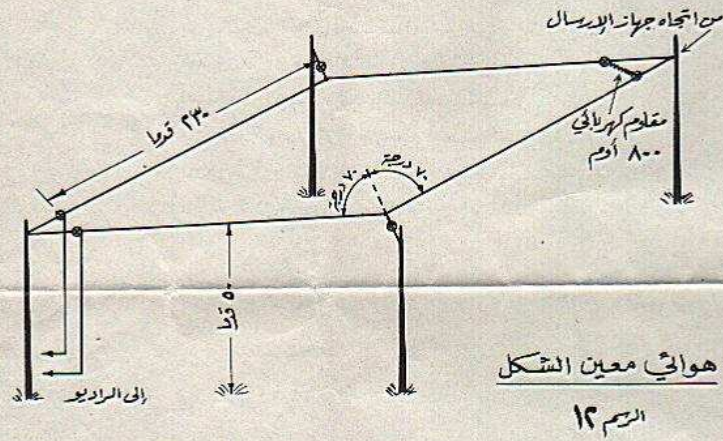 من اتجاه جهاز الإرسال
مقاوم كهربائي
٨٠٠ أوم
٢٣٠ قدما
٧٠ درجة
٧٠ درجة
٥٠ قدما
إلى الراديو
هوائي معين الشكل
الرسم ١٢